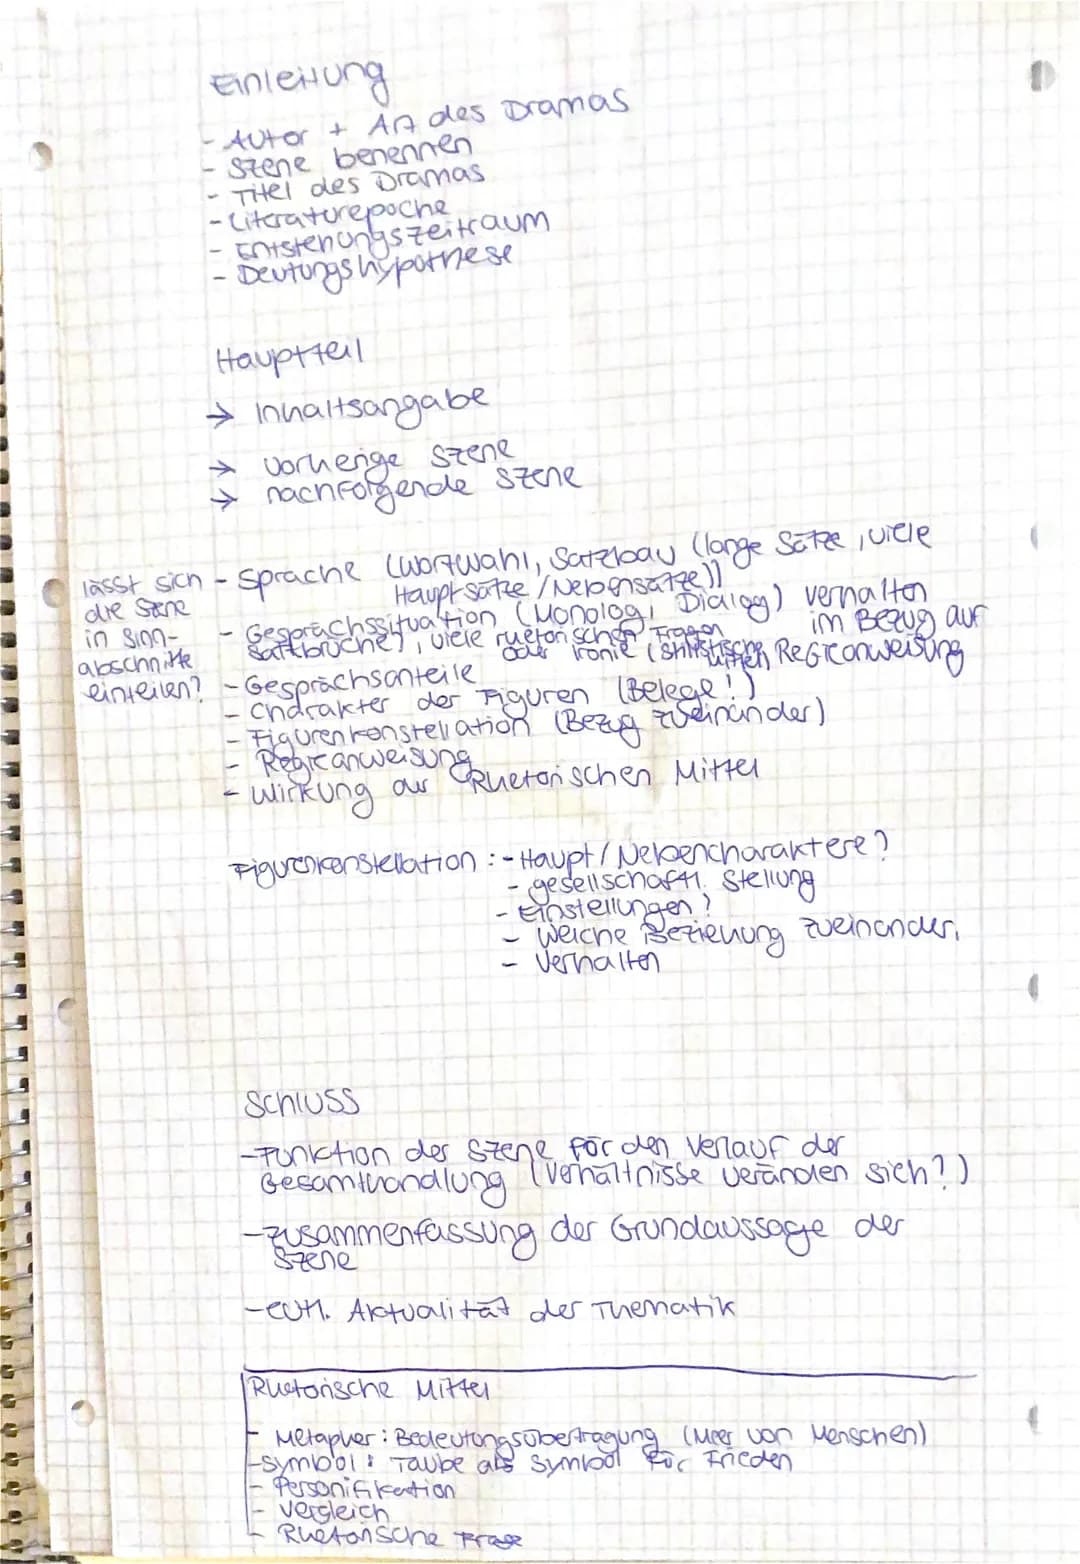 Einleitung
- Autor + Art des Dramas
- Szene benennen
- Titel des Dramas
- Literaturepoche
- Entstehungszeitraum
- Deutungshypothese
Hauptteil
→ Inhaltsangabe
→ vorherige Szene
→ nachfolgende Szene
lässt sich
die Szene
in Sinn-
abschnitte
einteilen?
- Sprache (Wortwahl, Satzbau (lange Sätze, viele
Hauptsätze / Nebensätze))
- Gesprächssituation (Monolog, Dialog) verhalten
Satzbrüche), viele rhetorischen Fragen im Bezug auf
oder Ironie (stilistische Regieanweisung
- Gesprächsanteile
- Charakter der Figuren (Belege!)
- Figurenkonstellation (Bezug zueinander)
- Regieanweisung
- Wirkung der Rhetorischen Mittel
Figurenkonstellation : - Haupt / Nebencharaktere?
- gesellschaftl. Stellung
- Einstellungen?
- Welche Beziehung zueinander,
- Verhalten
Schluss
- Funktion der Szene für den Verlauf der
Gesamthandlung (Verhältnisse veränden sich?)
- Zusammenfassung der Grundaussage der
Szene
- evtl. Aktualität der Thematik
Rhetorische Mittel
- Metapher: Bedeutungsübertragung (Meer von Menschen)
- Symbol: Taube als Symbol für Frieden
- Personifikation
- Vergleich
- Rhetorische Frage